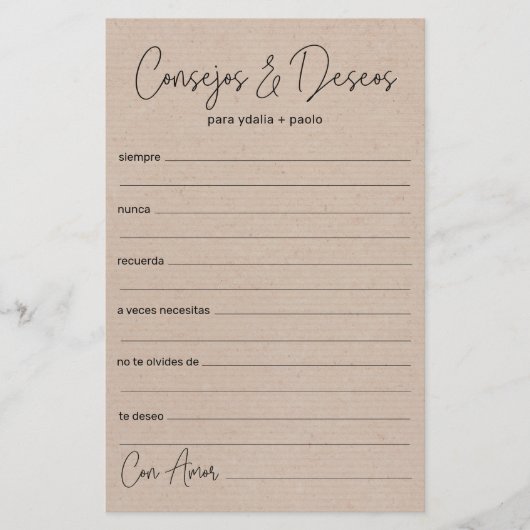 Consejos & Deseos
para ydalia + paolo
siempre
nunca
recuerda
a veces necesitas
no te olvides de
te deseo
Con Amor